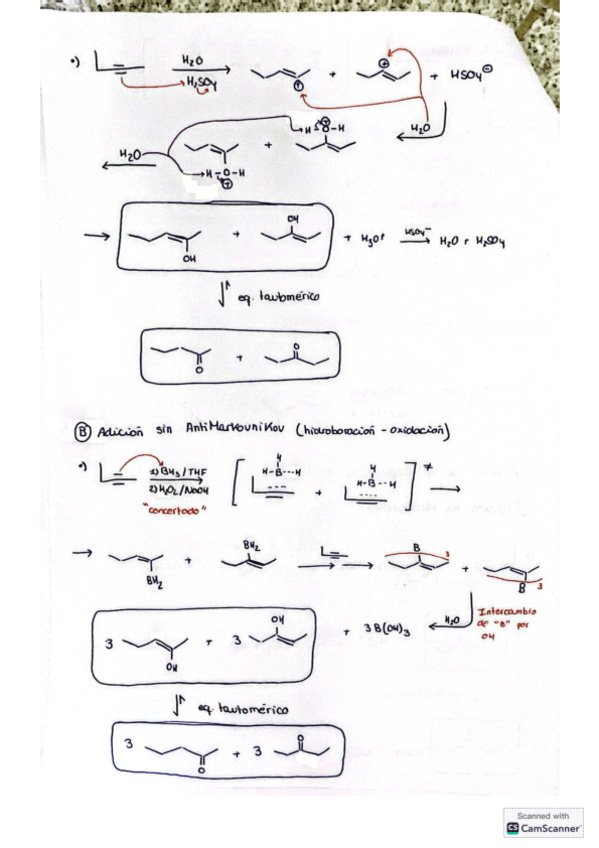 •) H₂O + + HSO₄⊖
H₂SO₄
H₂O
H-O-H
H₂O + 
H-O-H
OH
+ + H₃O⁺ HSO₄⁻ H₂O + H₂SO₄
OH
eq. tautomérico
O
+
O
Ⓑ Adición sin AntiMarkovnikov (hidroboración - oxidación)
•) 1) BH₃/THF
2) H₂O₂/NaOH
"concertado"
H
H-B---H
+
H
H-B---H
≠
BH₂
+
BH₂
B 3
+
B 3
Intercambio
de "B" por
OH
H₂O
3 + 3 OH + 3 B(OH)₃
OH
eq. tautomérico
3 + 3 O
O
Scanned with
CS CamScanner